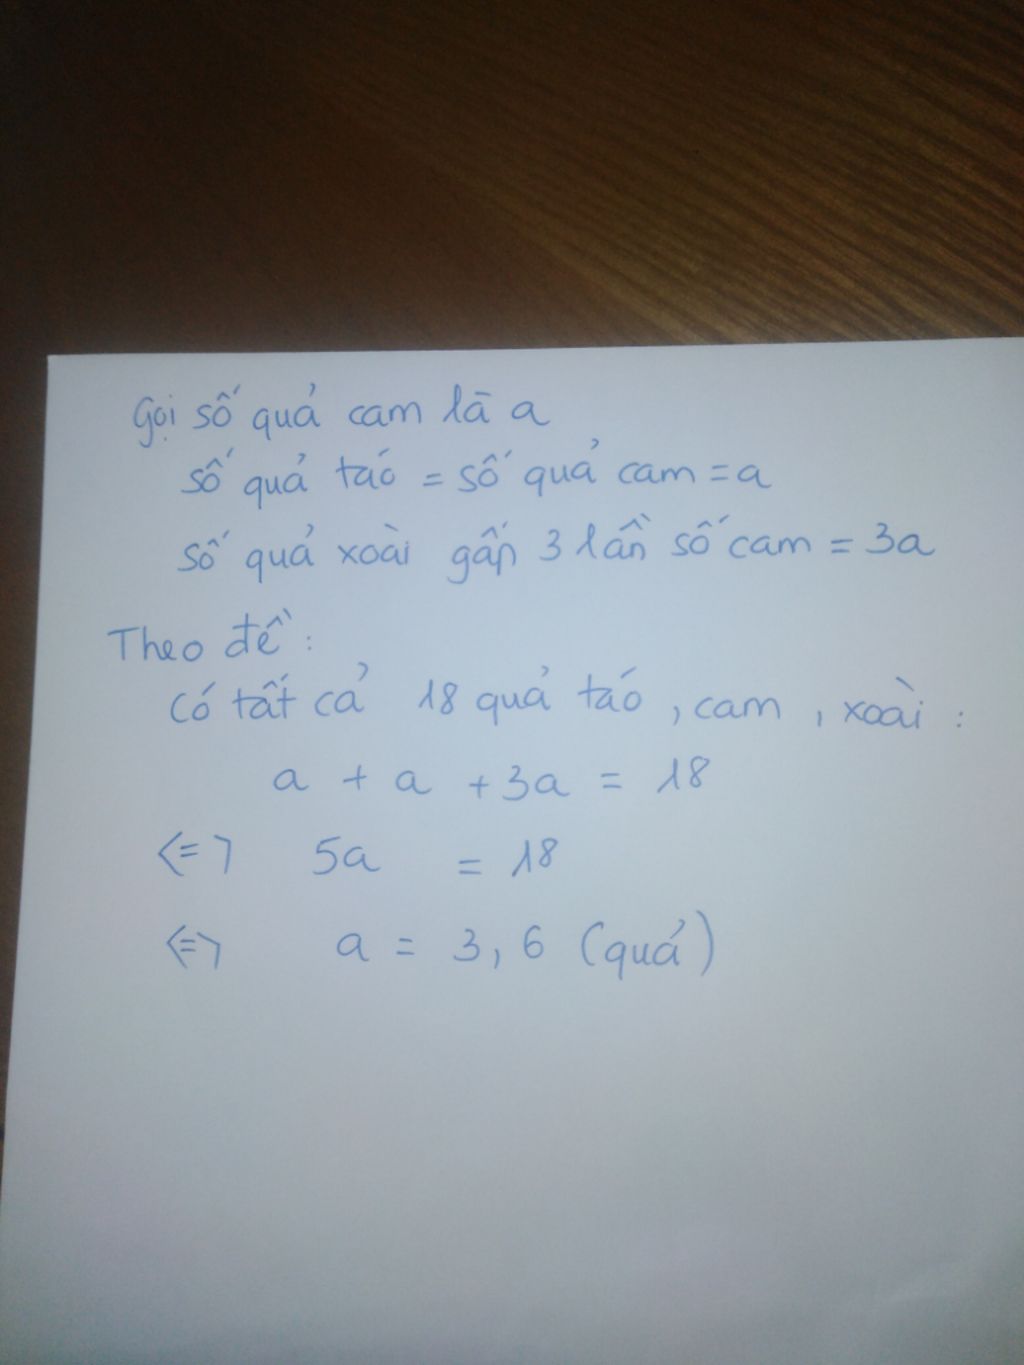 Gọi số quả cam là a
số quả táo = số quả cam = a
số quả xoài gấp 3 lần số cam = 3a
Theo đề :
Có tất cả 18 quả táo , cam , xoài :
a + a + 3a = 18
<=> 5a = 18
<=> a = 3,6 (quả)